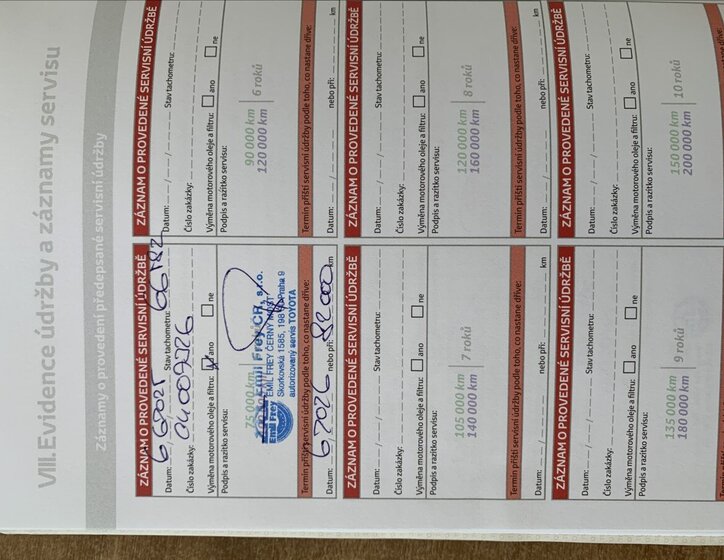 VIII. Evidence údržby a záznamy servisu
Záznamy o provedení předepsané servisní údržby
ZÁZNAM O PROVEDENÉ SERVISNÍ ÚDRŽBĚ
Datum: 6/6/2025 Stav tachometru: 66782
Číslo zakázky:
Výměna motorového oleje a filtru: ano ne
Podpis a razítko servisu:
75 000 km
Emil Frey ČR, s.r.o.
EMIL FREY ČERNÝ MOST
Skorkovská 1585, 198 00 Praha 9
autorizovaný servis TOYOTA
Emil Frey
Termín příští servisní údržby podle toho, co nastane dříve:
Datum: 6/2026 nebo při: 82000 km
ZÁZNAM O PROVEDENÉ SERVISNÍ ÚDRŽBĚ
Datum: __/__/____ Stav tachometru:
Číslo zakázky:
Výměna motorového oleje a filtru: ano ne
Podpis a razítko servisu:
90 000 km
120 000 km
6 roků
Termín příští servisní údržby podle toho, co nastane dříve:
Datum: __/__/____ nebo při: km
ZÁZNAM O PROVEDENÉ SERVISNÍ ÚDRŽBĚ
Datum: __/__/____ Stav tachometru:
Číslo zakázky:
Výměna motorového oleje a filtru: ano ne
Podpis a razítko servisu:
105 000 km
140 000 km
7 roků
Termín příští servisní údržby podle toho, co nastane dříve:
Datum: __/__/____ nebo při: km
ZÁZNAM O PROVEDENÉ SERVISNÍ ÚDRŽBĚ
Datum: __/__/____ Stav tachometru:
Číslo zakázky:
Výměna motorového oleje a filtru: ano ne
Podpis a razítko servisu:
120 000 km
160 000 km
8 roků
Termín příští servisní údržby podle toho, co nastane dříve:
Datum: __/__/____ nebo při: km
ZÁZNAM O PROVEDENÉ SERVISNÍ ÚDRŽBĚ
Datum: __/__/____ Stav tachometru:
Číslo zakázky:
Výměna motorového oleje a filtru: ano ne
Podpis a razítko servisu:
135 000 km
180 000 km
9 roků
ZÁZNAM O PROVEDENÉ SERVISNÍ ÚDRŽBĚ
Datum: __/__/____ Stav tachometru:
Číslo zakázky:
Výměna motorového oleje a filtru: ano ne
Podpis a razítko servisu:
150 000 km
200 000 km
10 roků